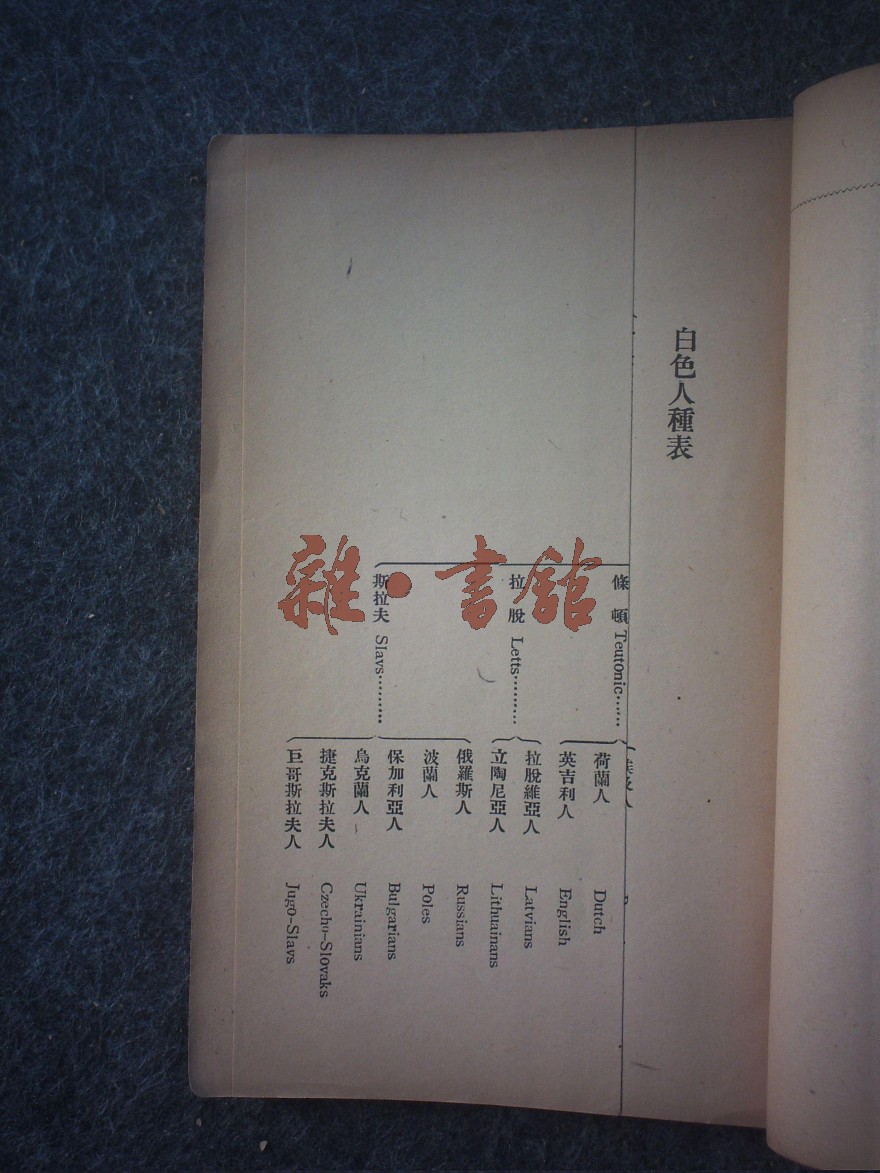 白色人種表
條頓 Teutonic……
荷蘭人 Dutch
英吉利人 English
拉脫 Letts………
拉脫維亞人 Latvians
立陶尼亞人 Lithuainans
斯拉夫 Slavs………
俄羅斯人 Russians
波蘭人 Poles
保加利亞人 Bulgarians
烏克蘭人 Ukrainians
捷克斯拉夫人 Czecho-Slovaks
巨哥斯拉夫人 Jugo-Slavs
雜·書館